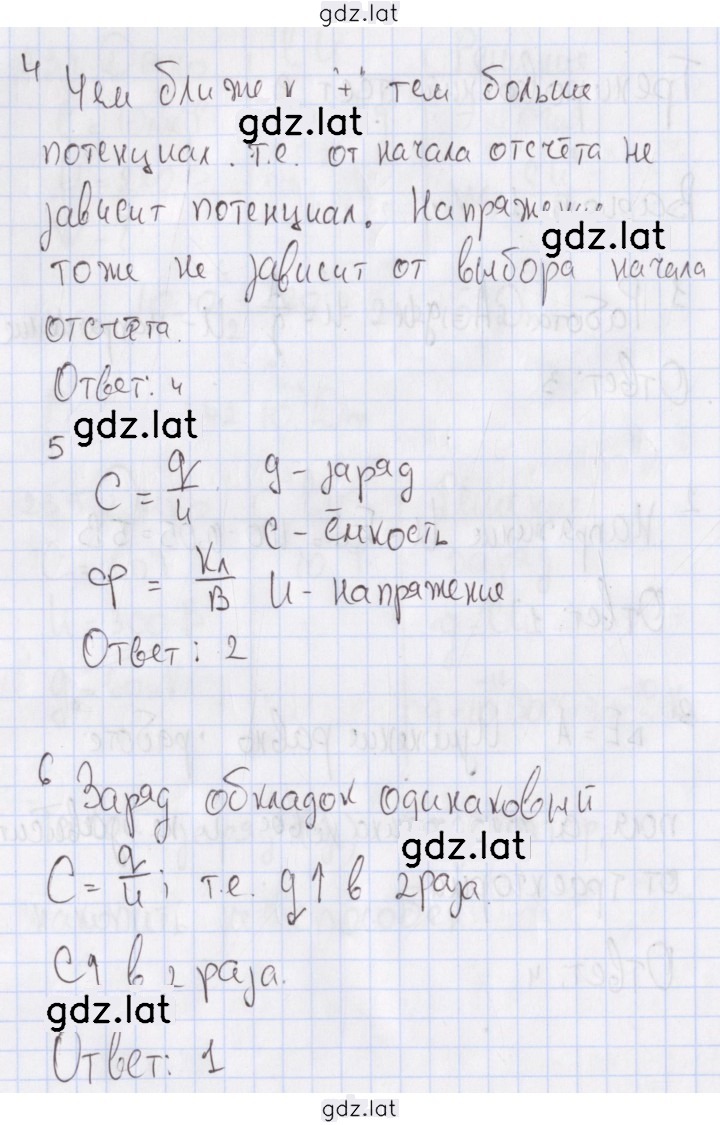 gdz.lat
4 Чем ближе к "+" тем больше
gdz.lat
потенциал. т.е. от начала отсчёта не
зависит потенциал.
gdz.lat
тоже не зависит от выбора начала
отсчёта.
Ответ: 4
gdz.lat
5
C = q/u q - заряд
C - ёмкость
Ф = Кл/В U - напряжение
Ответ: 2
6 Заряд обкладок одинаковый
gdz.lat
C = q/u; т.е. q↑ в 2 раза.
C↑ в 2 раза.
gdz.lat
Ответ: 1
gdz.lat